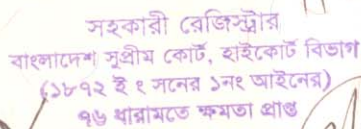 সহকারী রেজিস্ট্রার
বাংলাদেশ সুপ্রীম কোর্ট, হাইকোর্ট বিভাগ
(১৮৭২ ই ং সনের ১নং আইনের)
৭৬ ধারামতে ক্ষমতা প্রাপ্ত